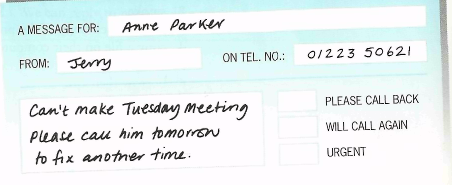 A MESSAGE FOR: Anne Parker
FROM: Jerry ON TEL. NO.: 01223 50621
Can't make Tuesday Meeting
Please call him tomorrow
to fix another time.
PLEASE CALL BACK
WILL CALL AGAIN
URGENT